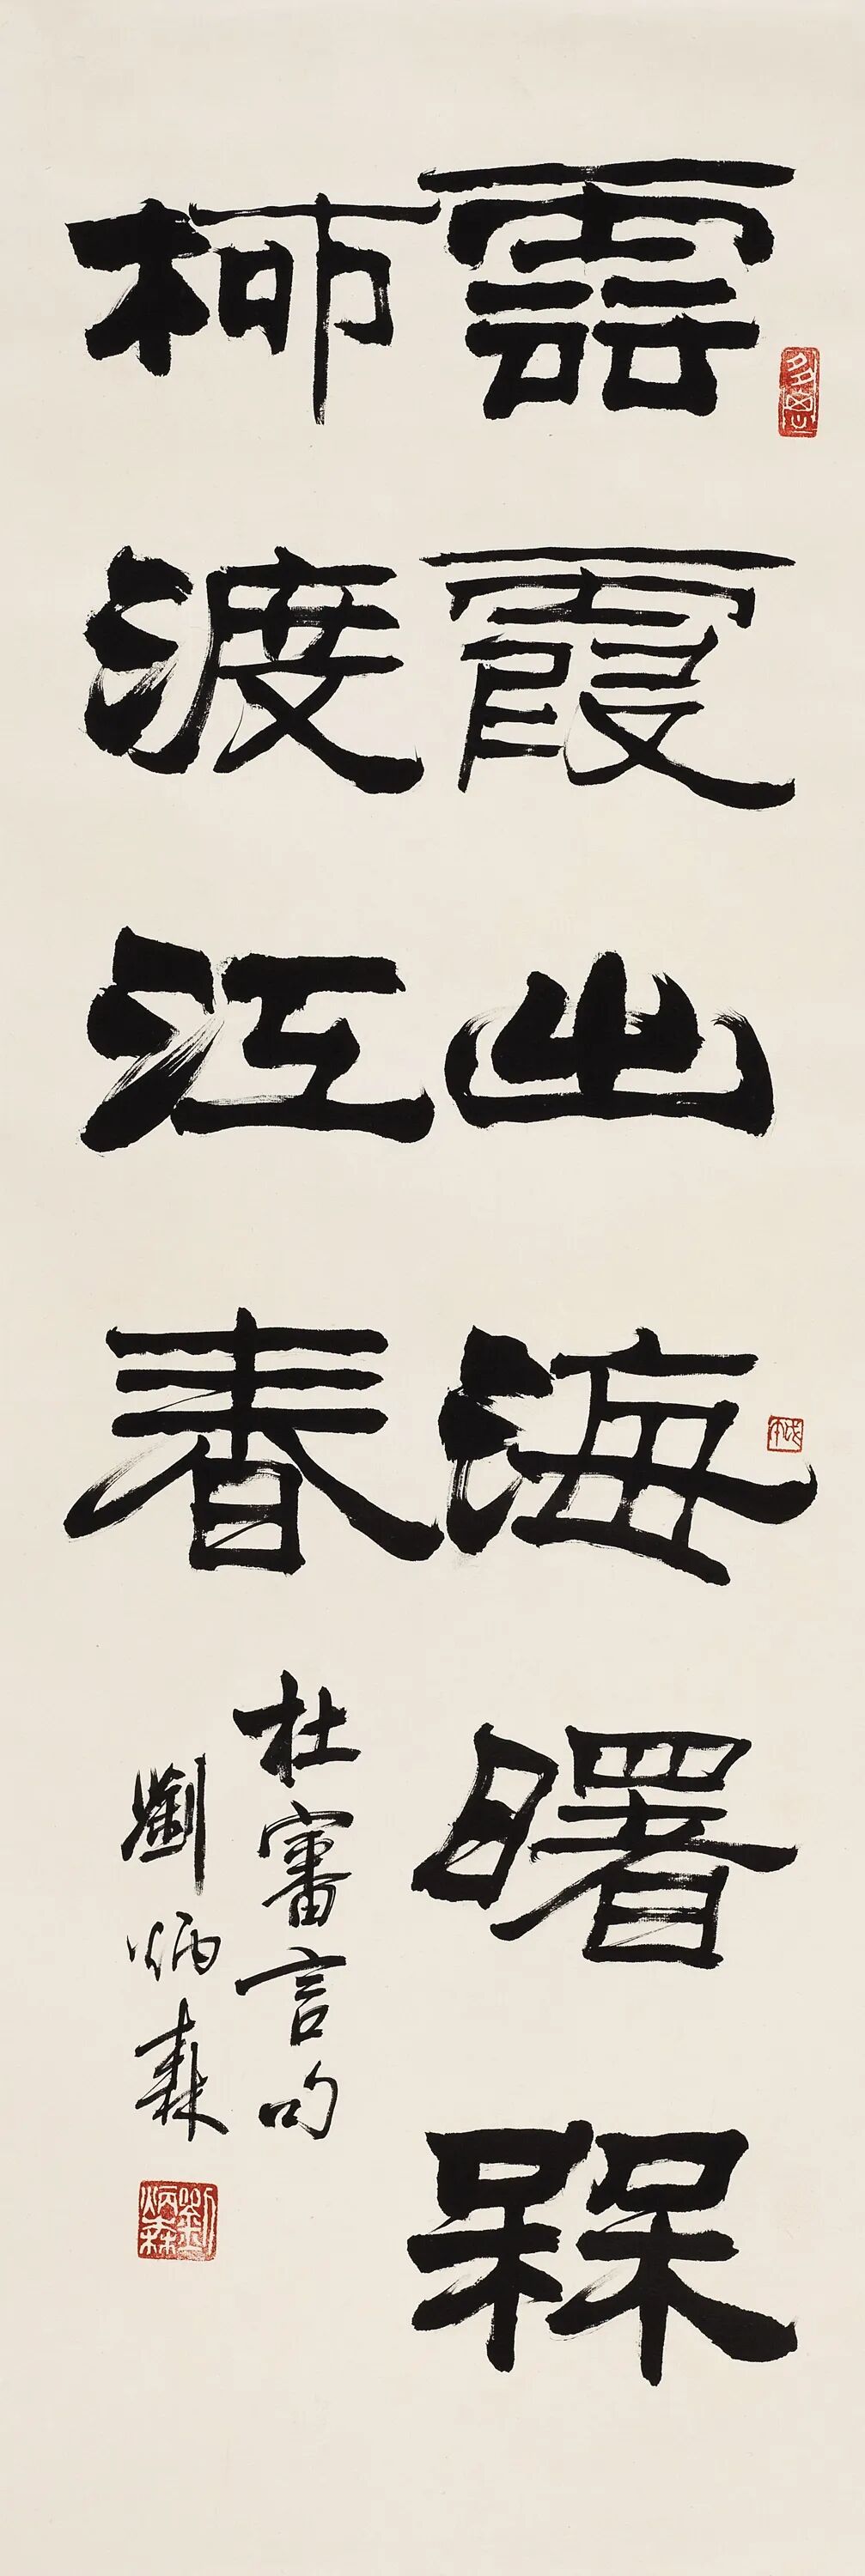 雲霞出海曙槑
柳渡江春
杜審言句
劉炳森
劉炳森